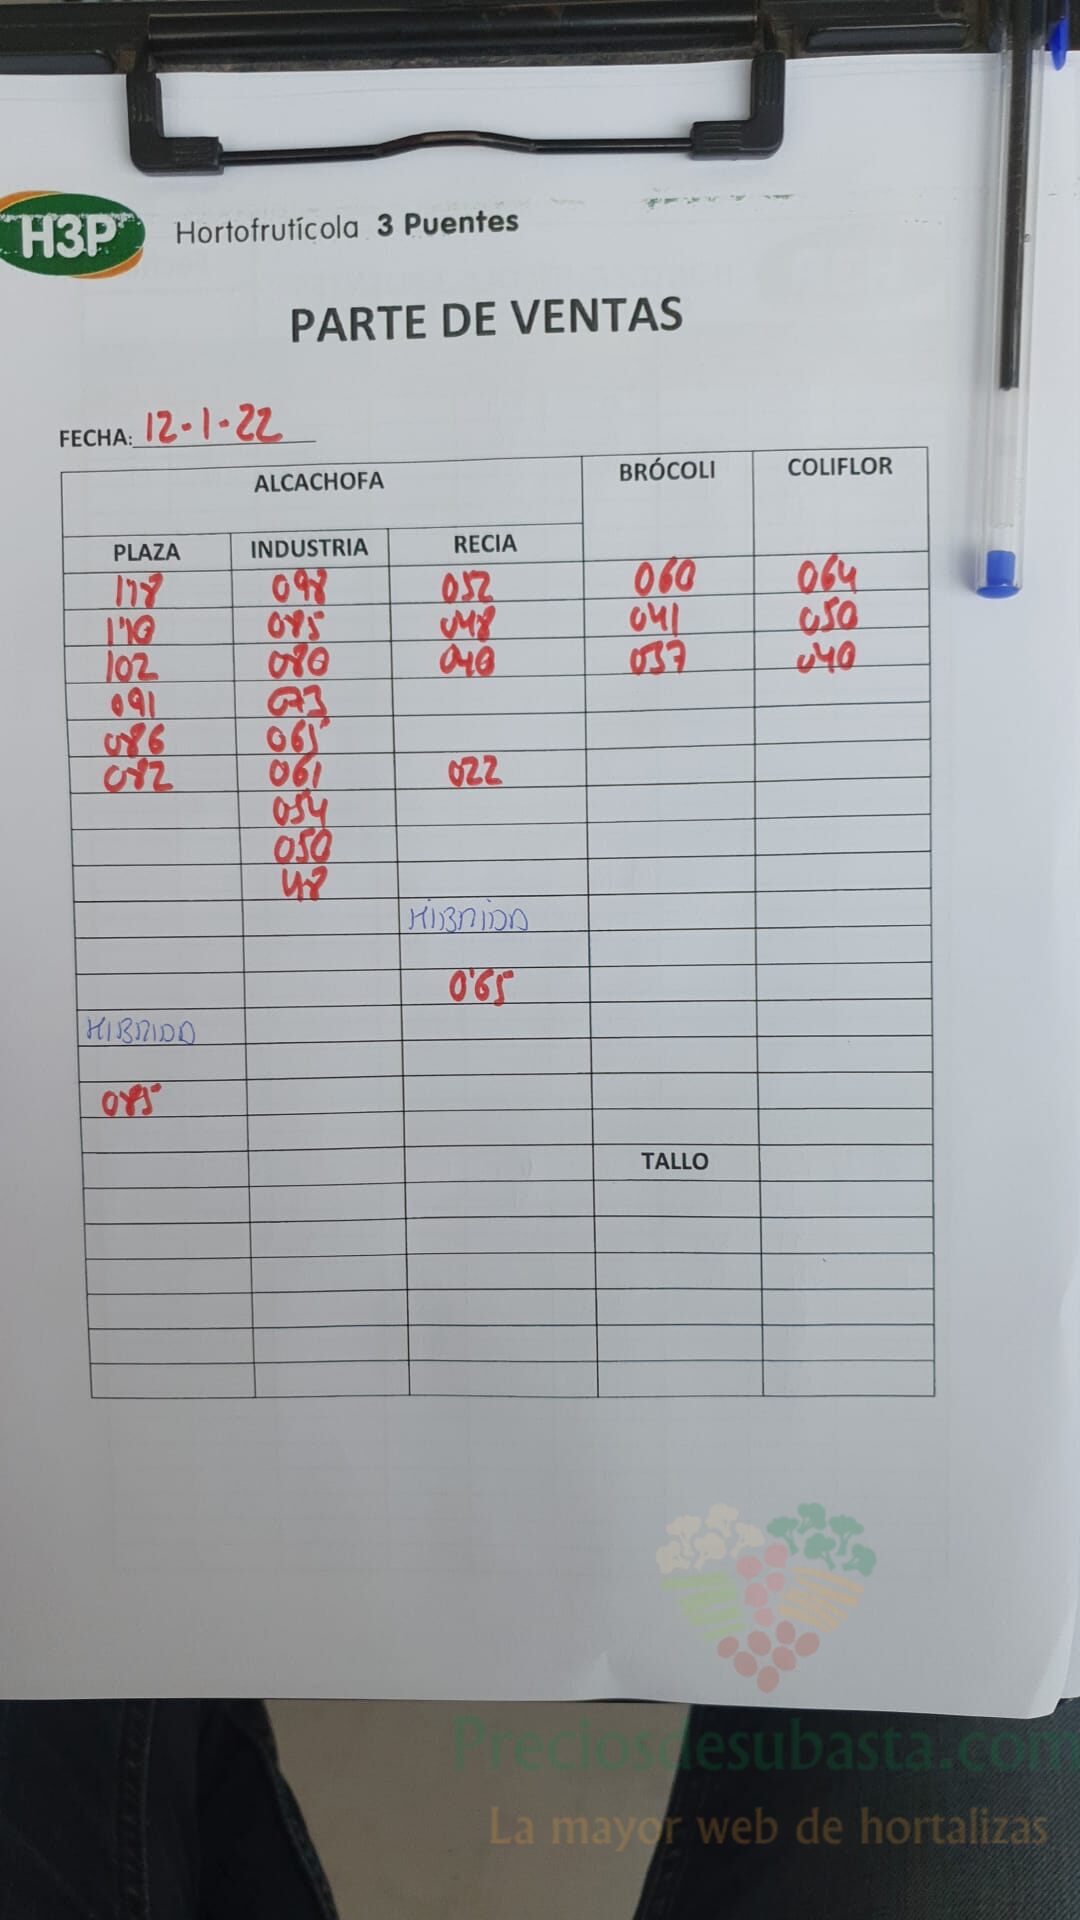 H3P Hortofrutícola 3 Puentes
PARTE DE VENTAS
FECHA: 12-1-22
ALCACHOFA BRÓCOLI COLIFLOR
PLAZA INDUSTRIA RECIA
118 098 052 060 064
1'10 085 048 041 050
102 080 040 037 040
091 073
086 065
082 061 022
054
050
48
HIBRIDA
0'65
HIBRIDA
085
TALLO
Preciosdesubasta.com
La mayor web de hortalizas